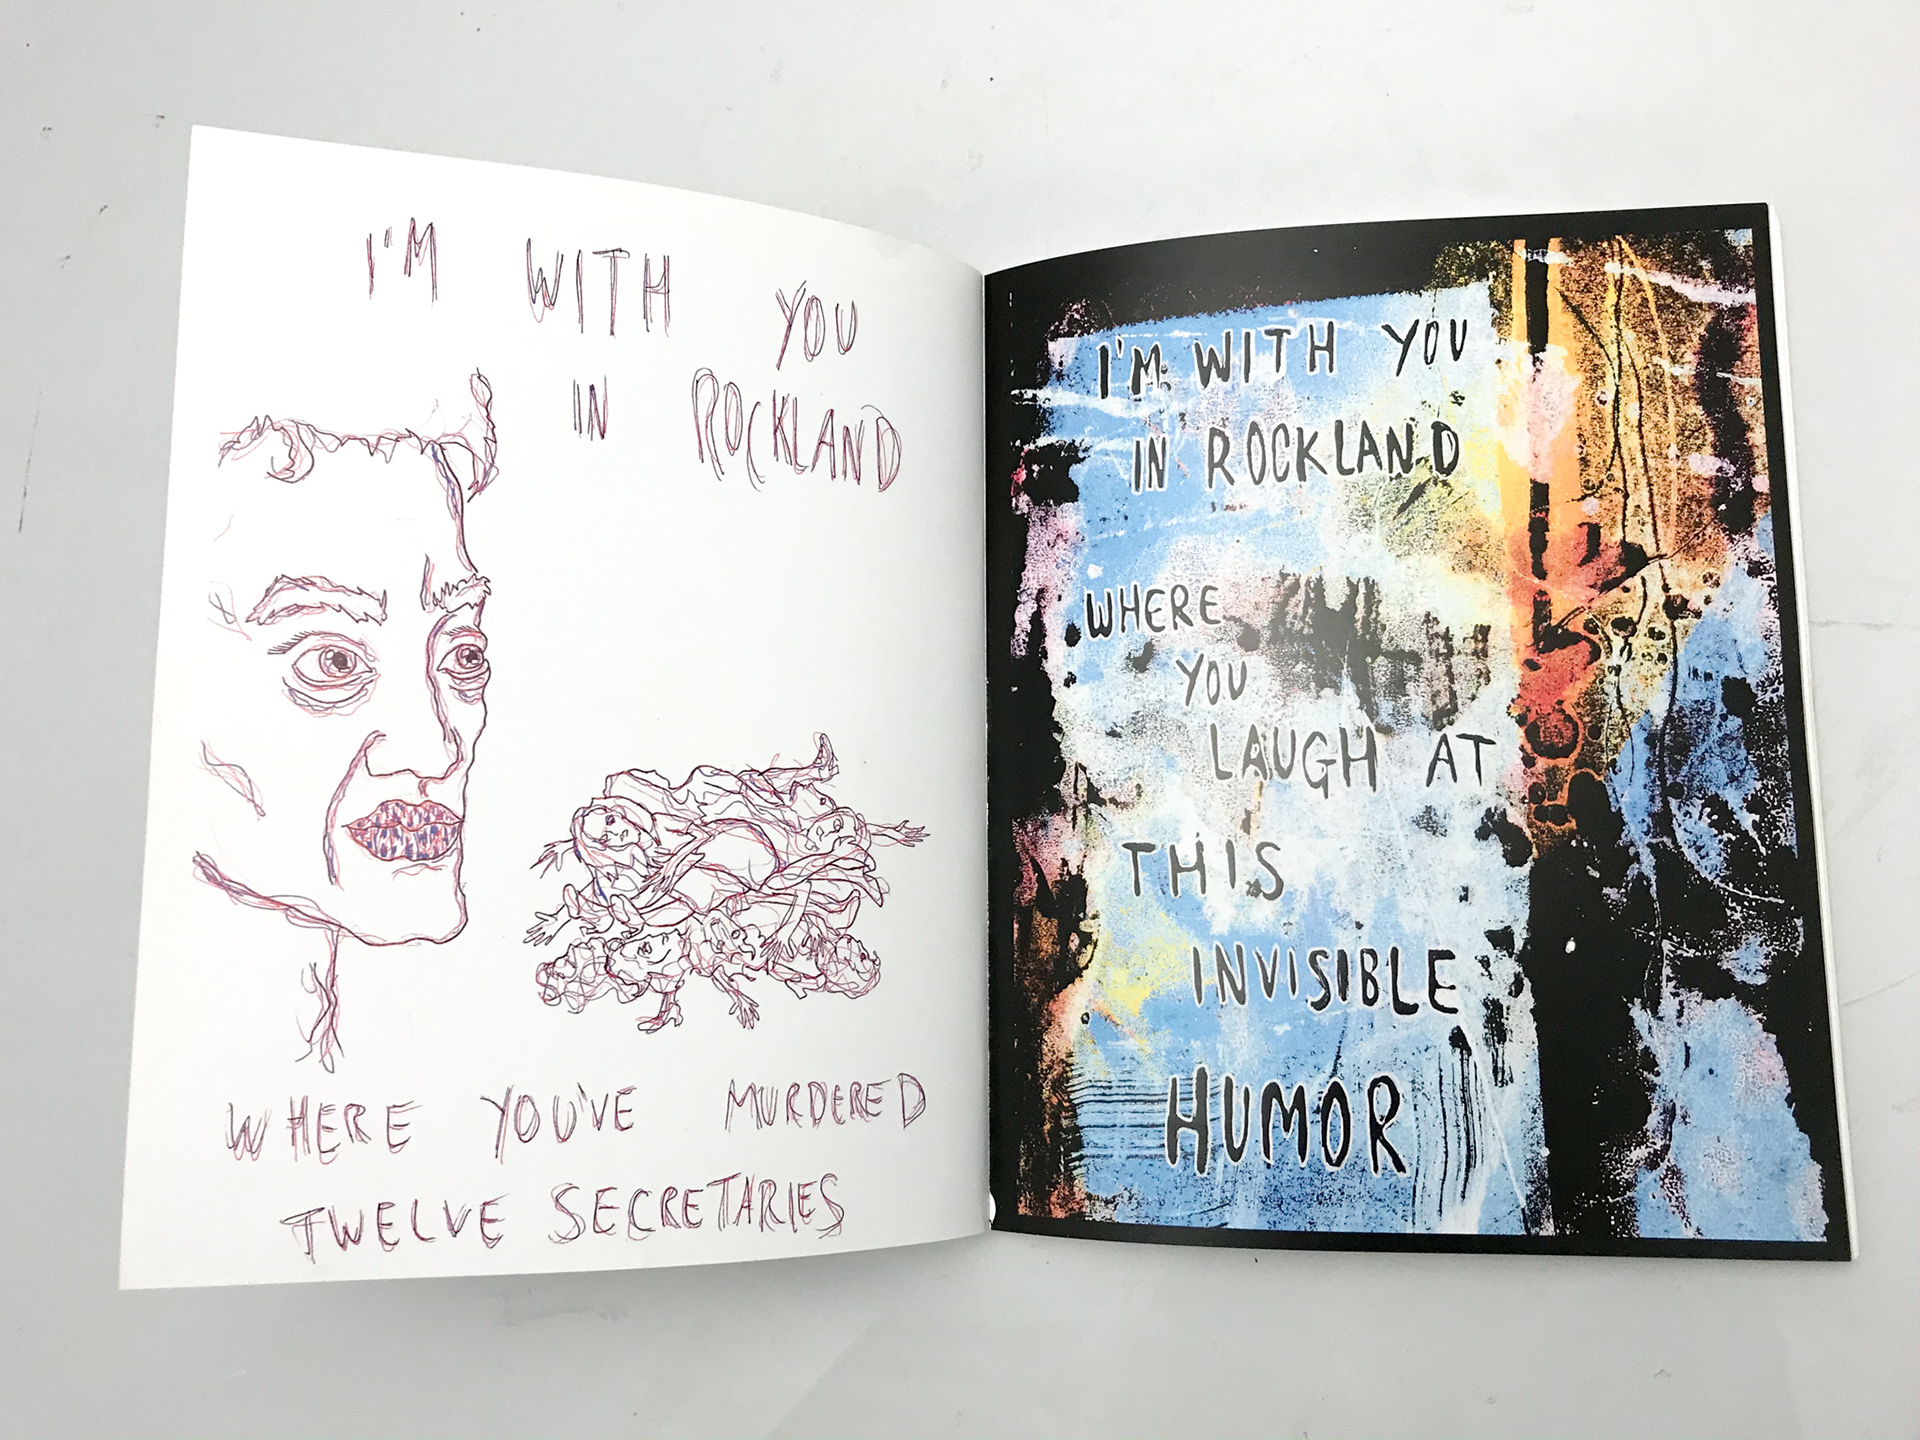 I'M WITH YOU
IN ROCKLAND
WHERE YOU'VE MURDERED
TWELVE SECRETARIES
I'M WITH YOU
IN ROCKLAND
WHERE
YOU
LAUGH AT
THIS
INVISIBLE
HUMOR